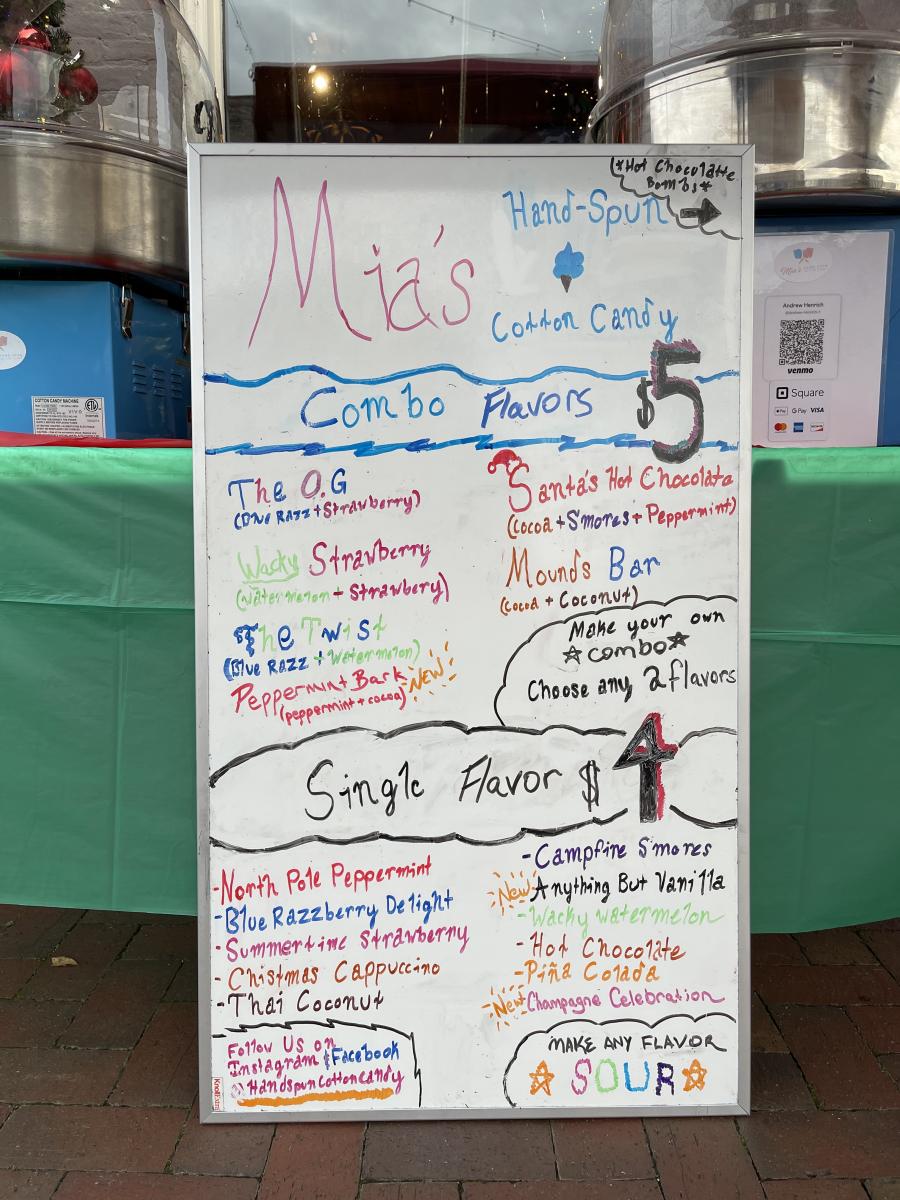 *Hot Chocolatte
Bombs*
Mia's
Hand-Spun
Cotton Candy
Combo Flavors $5
The O.G
(Blue Razz + Strawberry)
Wacky Strawberry
(Watermelon + Strawbery)
The Twist
(Blue Razz + Watermelon)
Peppermint Bark NEW
(peppermint + cocoa)
Santa's Hot Chocolate
(Cocoa + S'mores + Peppermint)
Mounds Bar
(Cocoa + Coconut)
Make your own
combo
Choose any 2 flavors
Single Flavor $4
-North Pole Peppermint
-Blue Razzberry Delight
-Summertime Strawberry
-Chistmas Cappuccino
-Thai Coconut
-Campfire S'mores
New Anything But Vanilla
-Wacky watermelon
-Hot Chocolate
-Piña Colada
New Champagne Celebration
Follow Us on
Instagram & Facebook
@Handspuncottoncandy
MAKE ANY FLAVOR
SOUR
COTTON CANDY MACHINE
Mia's
Andrew Henrich
venmo
Square
Pay G Pay VISA